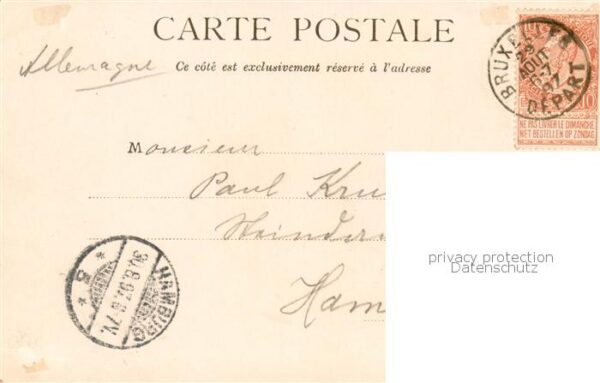 CARTE POSTALE
Allemagne
Ce côté est exclusivement réservé à l'adresse
BRUXELLES
AOUT
6-7
97
DÉPART
10
NE PAS LIVRER LE DIMANCHE
NIET BESTELLEN OP ZONDAG
Monsieur
Paul
privacy protection
Datenschutz
HAMBURG
30.8.97.6-7N.